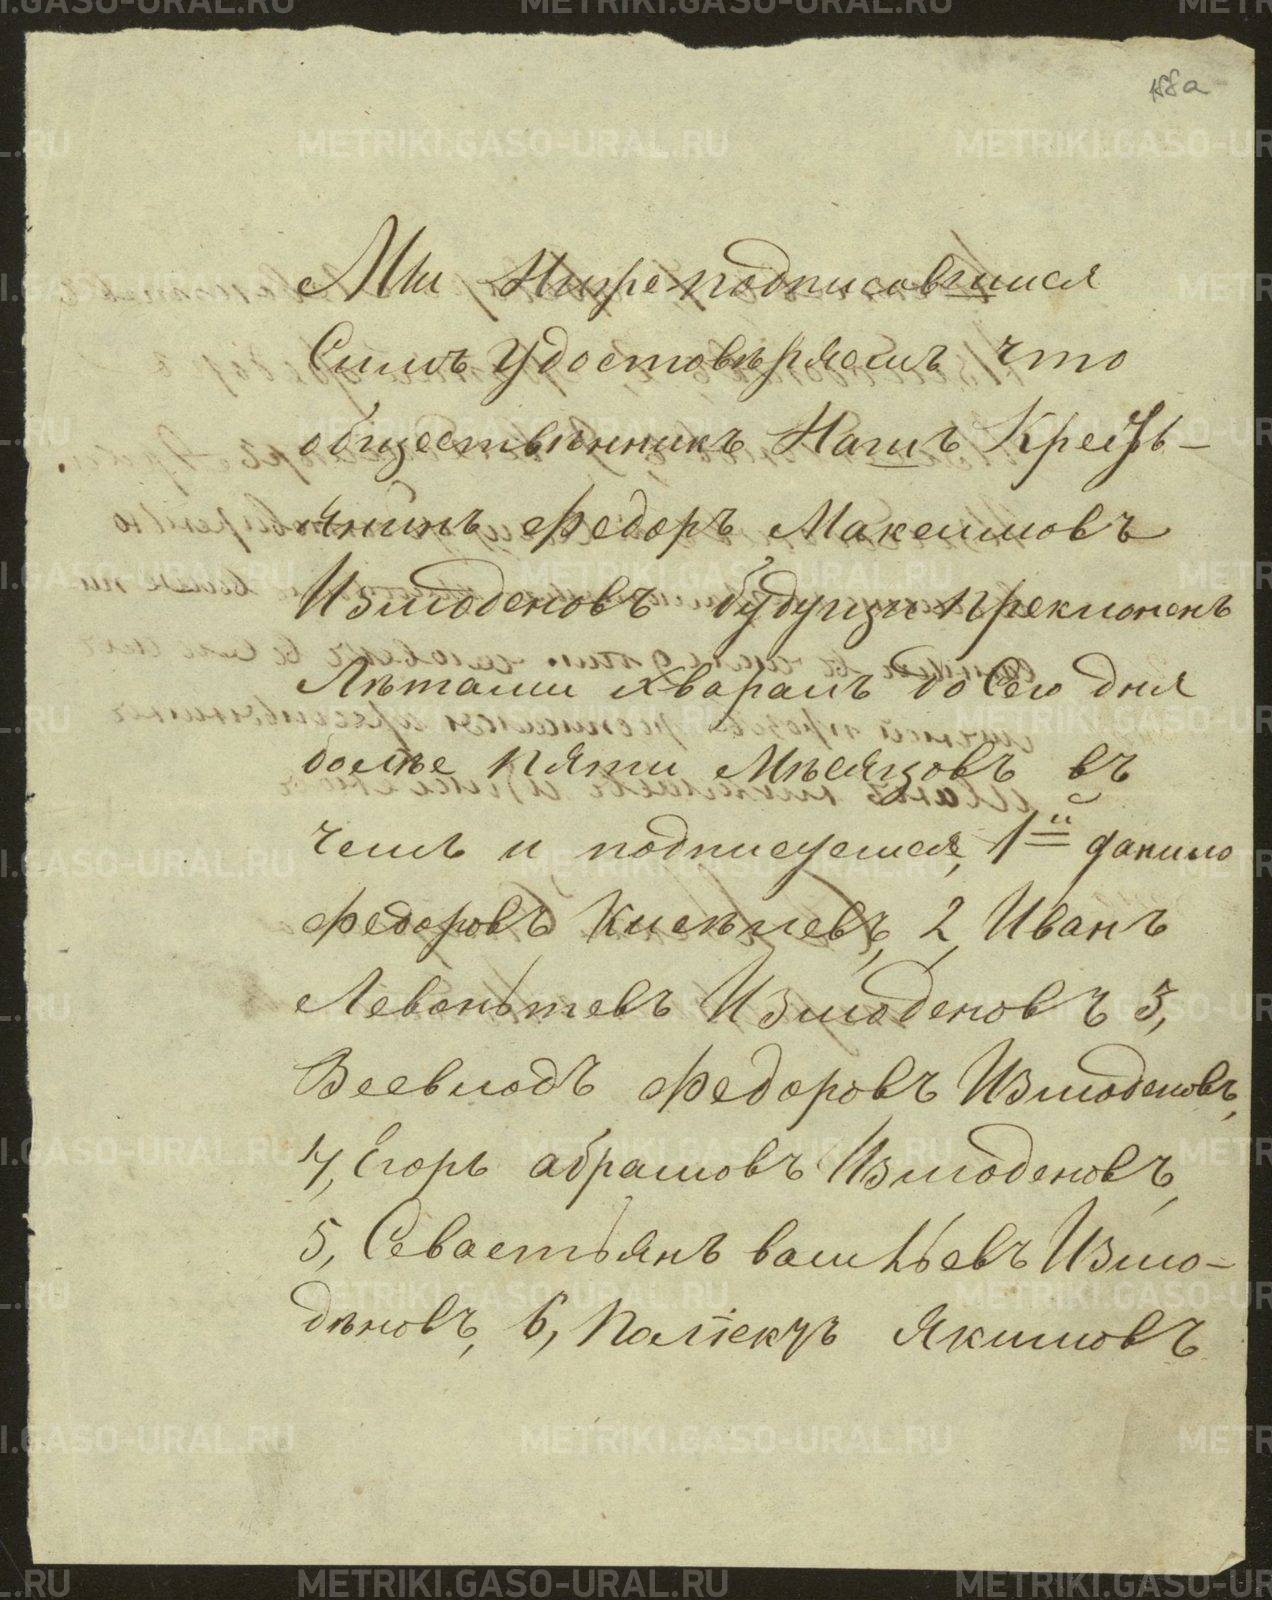 188а
Мы Нижеподписавшися
Симъ удостовѣряемъ что
общественникъ Нашъ Кресть-
янинъ Федоръ Максимовъ
Измоденовъ будучи преклоненъ
Лѣтами хваралъ до Сего дня
болѣе пяти Мѣсяцовъ въ
чемъ и подписуемся, 1й данило
Федоровъ Киселевъ, 2, Иванъ
Левонтьевъ Измоденовъ 3,
Всевлодъ Федоровъ Измоденовъ,
4, Егоръ абрамовъ Измоденовъ,
5, Севастьянъ васильевъ Измо-
дѣновъ, 6, Якимовъ
METRIKI.GASO-URAL.RU